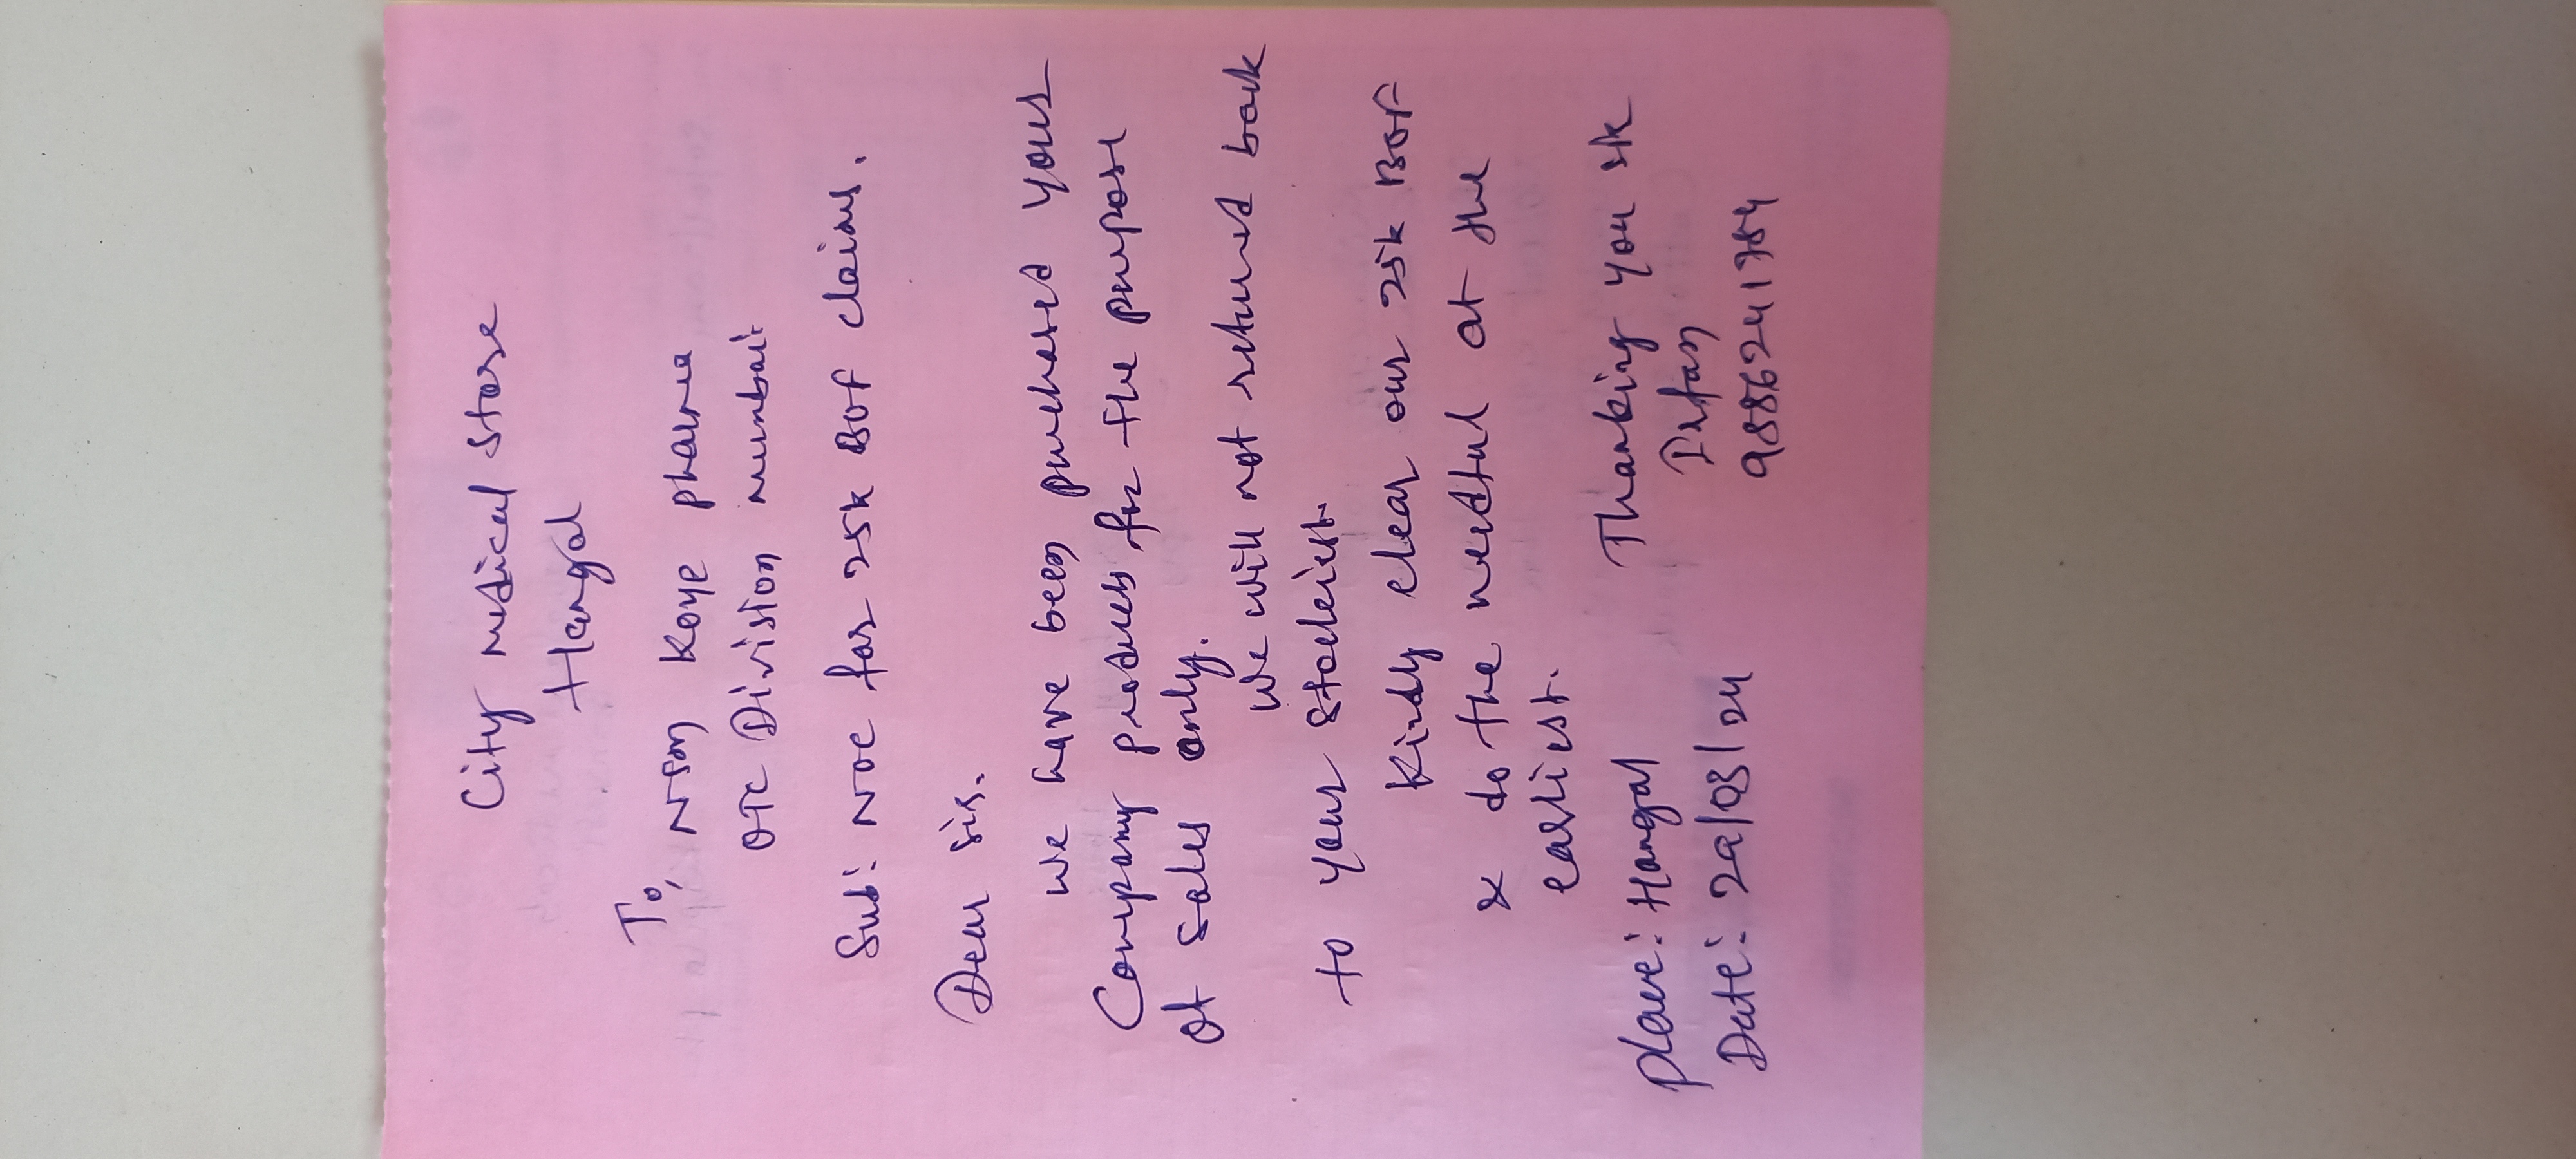 City medical store
Hangal
To,
Nson Koye pharma
OTC Division mumbai.
Sub: NOC for 25k BOF claims.
Dear sir.
we have been purchased your
Company products for the purpose
of sales only.
We will not returned back
to your stockist.
Kindly clear our 25k BOF
& do the needful at the
earliest.
Thanking you
Place: Hangal Irfan
Date: 29/03/24 9886241784